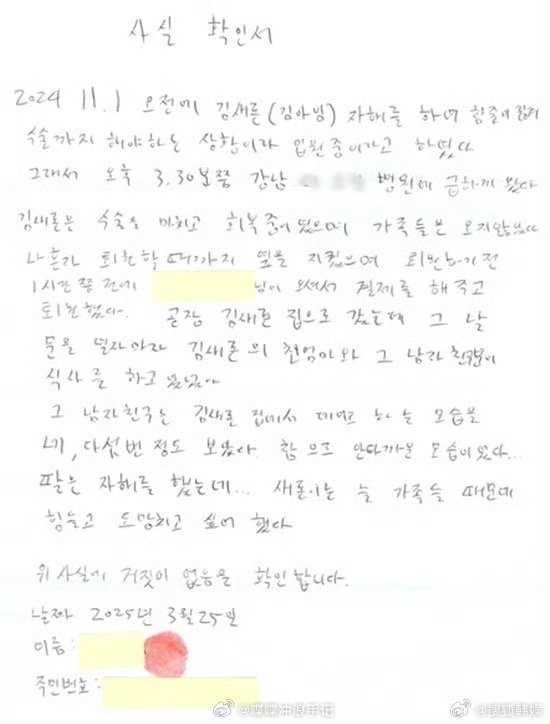 사실 확인서
2024 11.1 오전에 김새론(김아임) 자해를 하여 힘줄이
수술까지 해야하는 상황이라 입원중이라고 하였다
그래서 오후 3.30분쯤 강남 병원에 급하게 갔다
김새론은 수술을 마치고 회복중이었으며 가족들은 오지않았다
나혼자 퇴원할때까지 옆을 지켰으며 퇴원하기전
1시간쯤 전에 님이 오셔서 결제를 해주고
퇴원했다. 곧장 김새론 집으로 갔는데 그 날
문을 열자마자 김새론의 친엄마와 그 남자친구분이
식사를 하고 있었다
그 남자친구는 김새론 집에서 데이트 하는 모습을
네, 다섯번 정도 보았다. 참으로 안타까운 모습이었다...
딸은 자해를 했는데... 새론이는 늘 가족들 때문에
힘들고 도망치고 싶어 했다
위 사실에 거짓이 없음을 확인합니다.
날짜 2025년 3월 25일
이름:
주민번호:
@哎哎冲浪手记
@搜狐韩娱